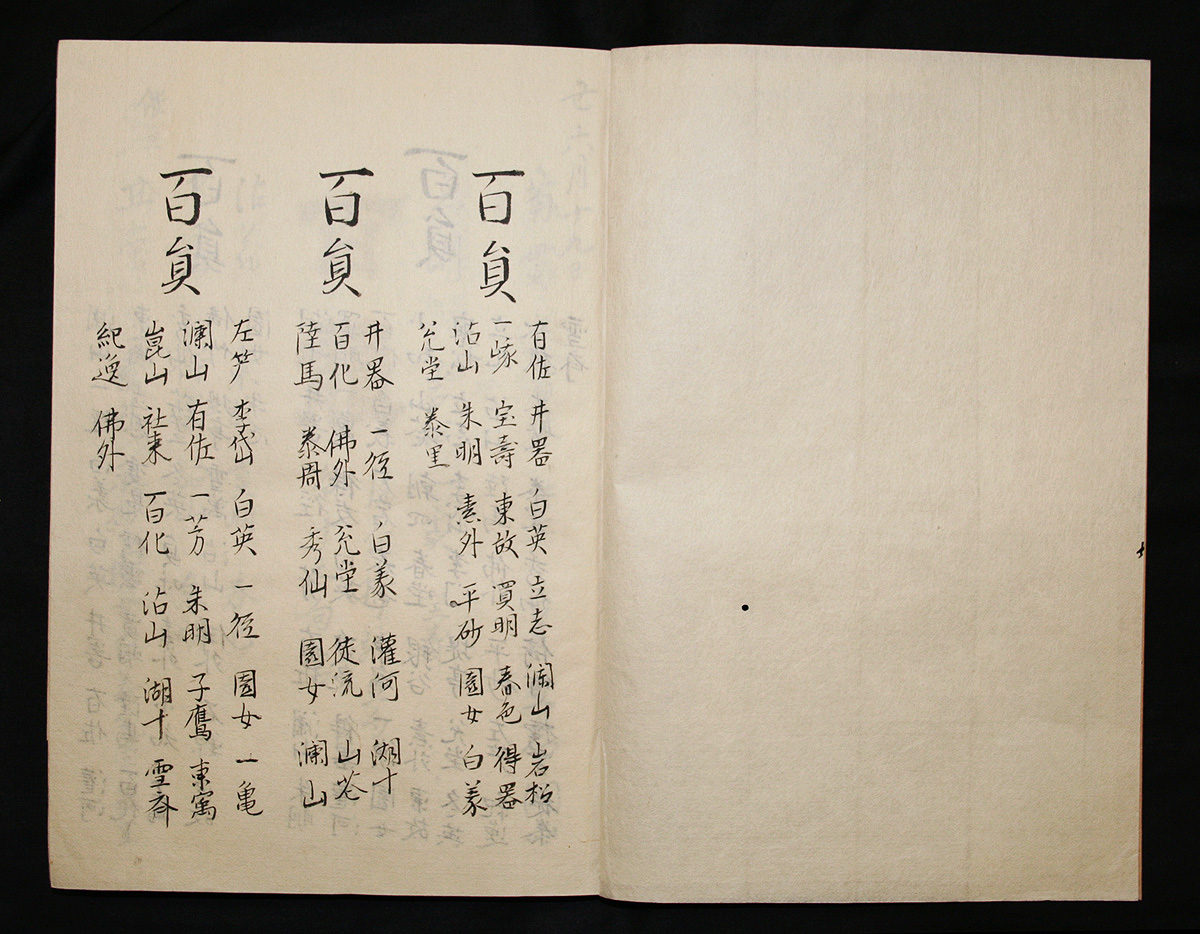 百員
有佐 井器 白英 立志 瀾山 岩松
一啄 宝壽 東故 買明 春色 得器
沾山 朱明 素外 平砂 園女 白義
兊堂 泰里
百員
井器 一径 白義 灌河 湖十
百化 佛外 兊堂 徒流 山老
陸馬 泰周 秀仙 園女 瀾山
百員
左笋 李岱 白英 一径 園女 一亀
瀾山 有佐 一芳 朱明 子鷹 東寓
崑山 社来 百化 沾山 湖十 雪斎
紀逸 佛外